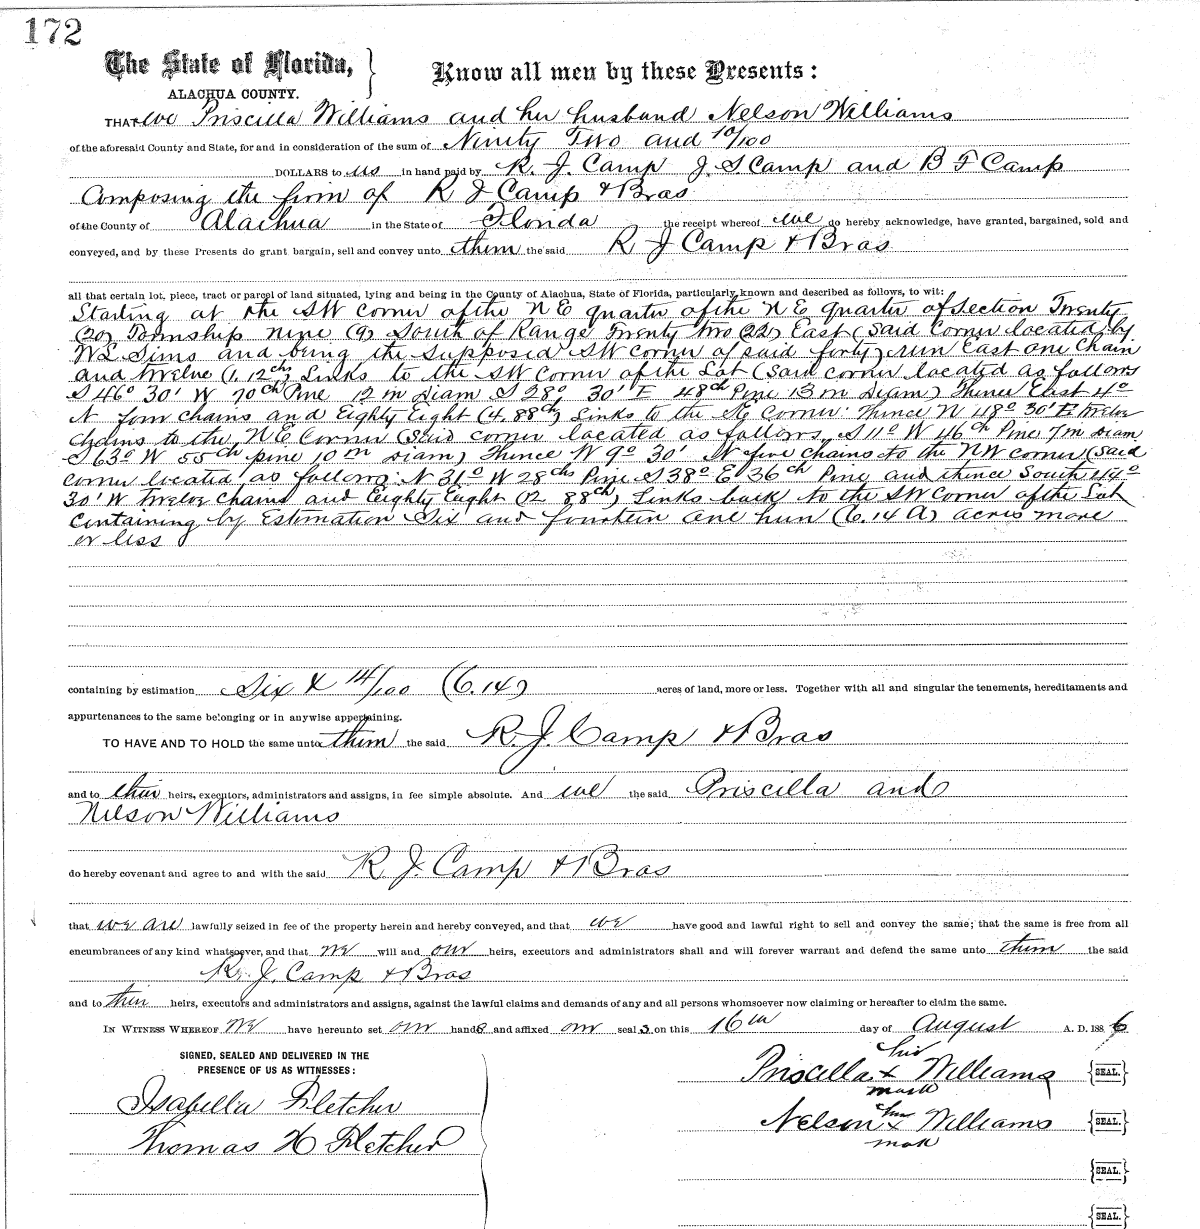 172
The State of Florida, } Know all men by these Presents:
ALACHUA COUNTY.
THAT we Priscilla Williams and her husband Nelson Williams
of the aforesaid County and State, for and in consideration of the sum of Ninity Two and 10/100
DOLLARS to us in hand paid by R. J. Camp J. S Camp and B F Camp
Composing the firm of R J Camp & Bras
of the County of Alachua in the State of Florida the receipt whereof we do hereby acknowledge, have granted, bargained, sold and
conveyed, and by these Presents do grant bargain, sell and convey unto them the said R J Camp & Bras
all that certain lot, piece, tract or parcel of land situated, lying and being in the County of Alachua, State of Florida, particularly known and described as follows, to wit:
Starting at the SW corner of the N E quarter of the N E Quarter of Section Twenty
(20) Township nine (9) South of Range Twenty two (22) East (Said Corner located by
W S Sims and being the supposed SW corner of said forty) run East one Chain
and twelve (1.12chs) Links to the SW Corner of the Lot (said corner located as follows
S 46° 30' W 70ch Pine 12 m Diam S 28° 30' E 48ch Pine 13 m Diam) Thence East 4°
N four chains and Eighty Eight (4.88ch) Links to the SE Corner: Thence N 48° 30' E twelve
chains to the N E Corner (Said corner located as follows S 11° W 46ch Pine 7m Diam
S 63° W 55ch pine 10m Diam) Thence W 9° 30' N five chains to the NW corner (Said
corner located as follows N 31° W 28chs Pine S 38° E 36ch Pine and thence South 49°
30' W twelve chains and Eighty Eight (12 88ch) Links back to the SW Corner of the Lot
Containing by Estimation Six and fourteen one hun (6.14 A) acres more
or less
containing by estimation Six & 14/100 (6.14) acres of land, more or less. Together with all and singular the tenements, hereditaments and
appurtenances to the same belonging or in anywise appertaining.
TO HAVE AND TO HOLD the same unto them the said R. J. Camp & Bras
and to their heirs, executors, administrators and assigns, in fee simple absolute. And we the said Priscilla and
Nelson Williams
do hereby covenant and agree to and with the said R J. Camp & Bras
that we are lawfully seized in fee of the property herein and hereby conveyed, and that we have good and lawful right to sell and convey the same; that the same is free from all
encumbrances of any kind whatsoever, and that we will and our heirs, executors and administrators shall and will forever warrant and defend the same unto them the said
R. J. Camp & Bras
and to their heirs, executors and administrators and assigns, against the lawful claims and demands of any and all persons whomsoever now claiming or hereafter to claim the same.
IN WITNESS WHEREOF we have hereunto set our hands and affixed our seals on this 16th day of August A. D. 1886
SIGNED, SEALED AND DELIVERED IN THE
PRESENCE OF US AS WITNESSES:
Isabella Fletcher
Thomas H Fletcher
his
Priscilla x Williams {SEAL.}
mark
his
Nelson x Williams {SEAL.}
mark
{SEAL.}
{SEAL.}